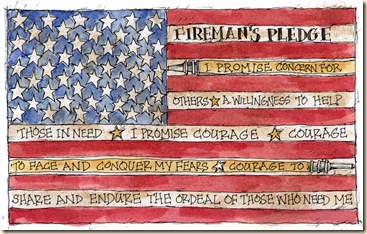 FIREMAN'S PLEDGE
I PROMISE CONCERN FOR
OTHERS ★ A WILLINGNESS TO HELP
THOSE IN NEED ★ I PROMISE COURAGE ★ COURAGE
TO FACE AND CONQUER MY FEARS ★ COURAGE TO
SHARE AND ENDURE THE ORDEAL OF THOSE WHO NEED ME